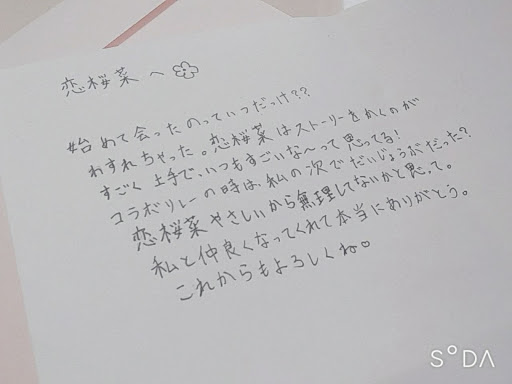 恋桜菜へ
始めて会ったのっていつだっけ??
わすれちゃった。恋桜菜はストーリーをかくのが
すごく上手で、いつもすごいな〜って思ってる!
コラボリレーの時は、私の次でだいじょうぶだった?
恋桜菜やさしいから無理してないかと思って。
私と仲良くなってくれて本当にありがとう。
これからもよろしくね。
SODA